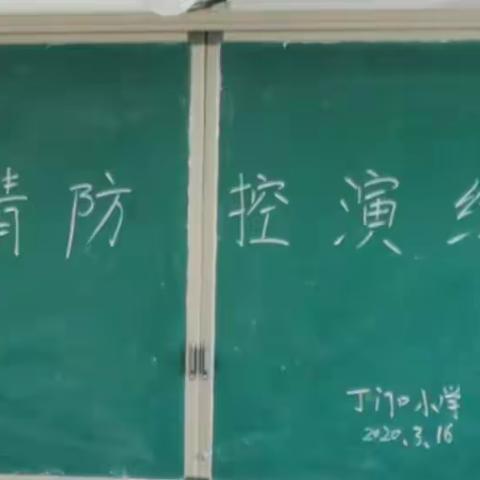 情防控演练
丁沟小学
2020.3.16